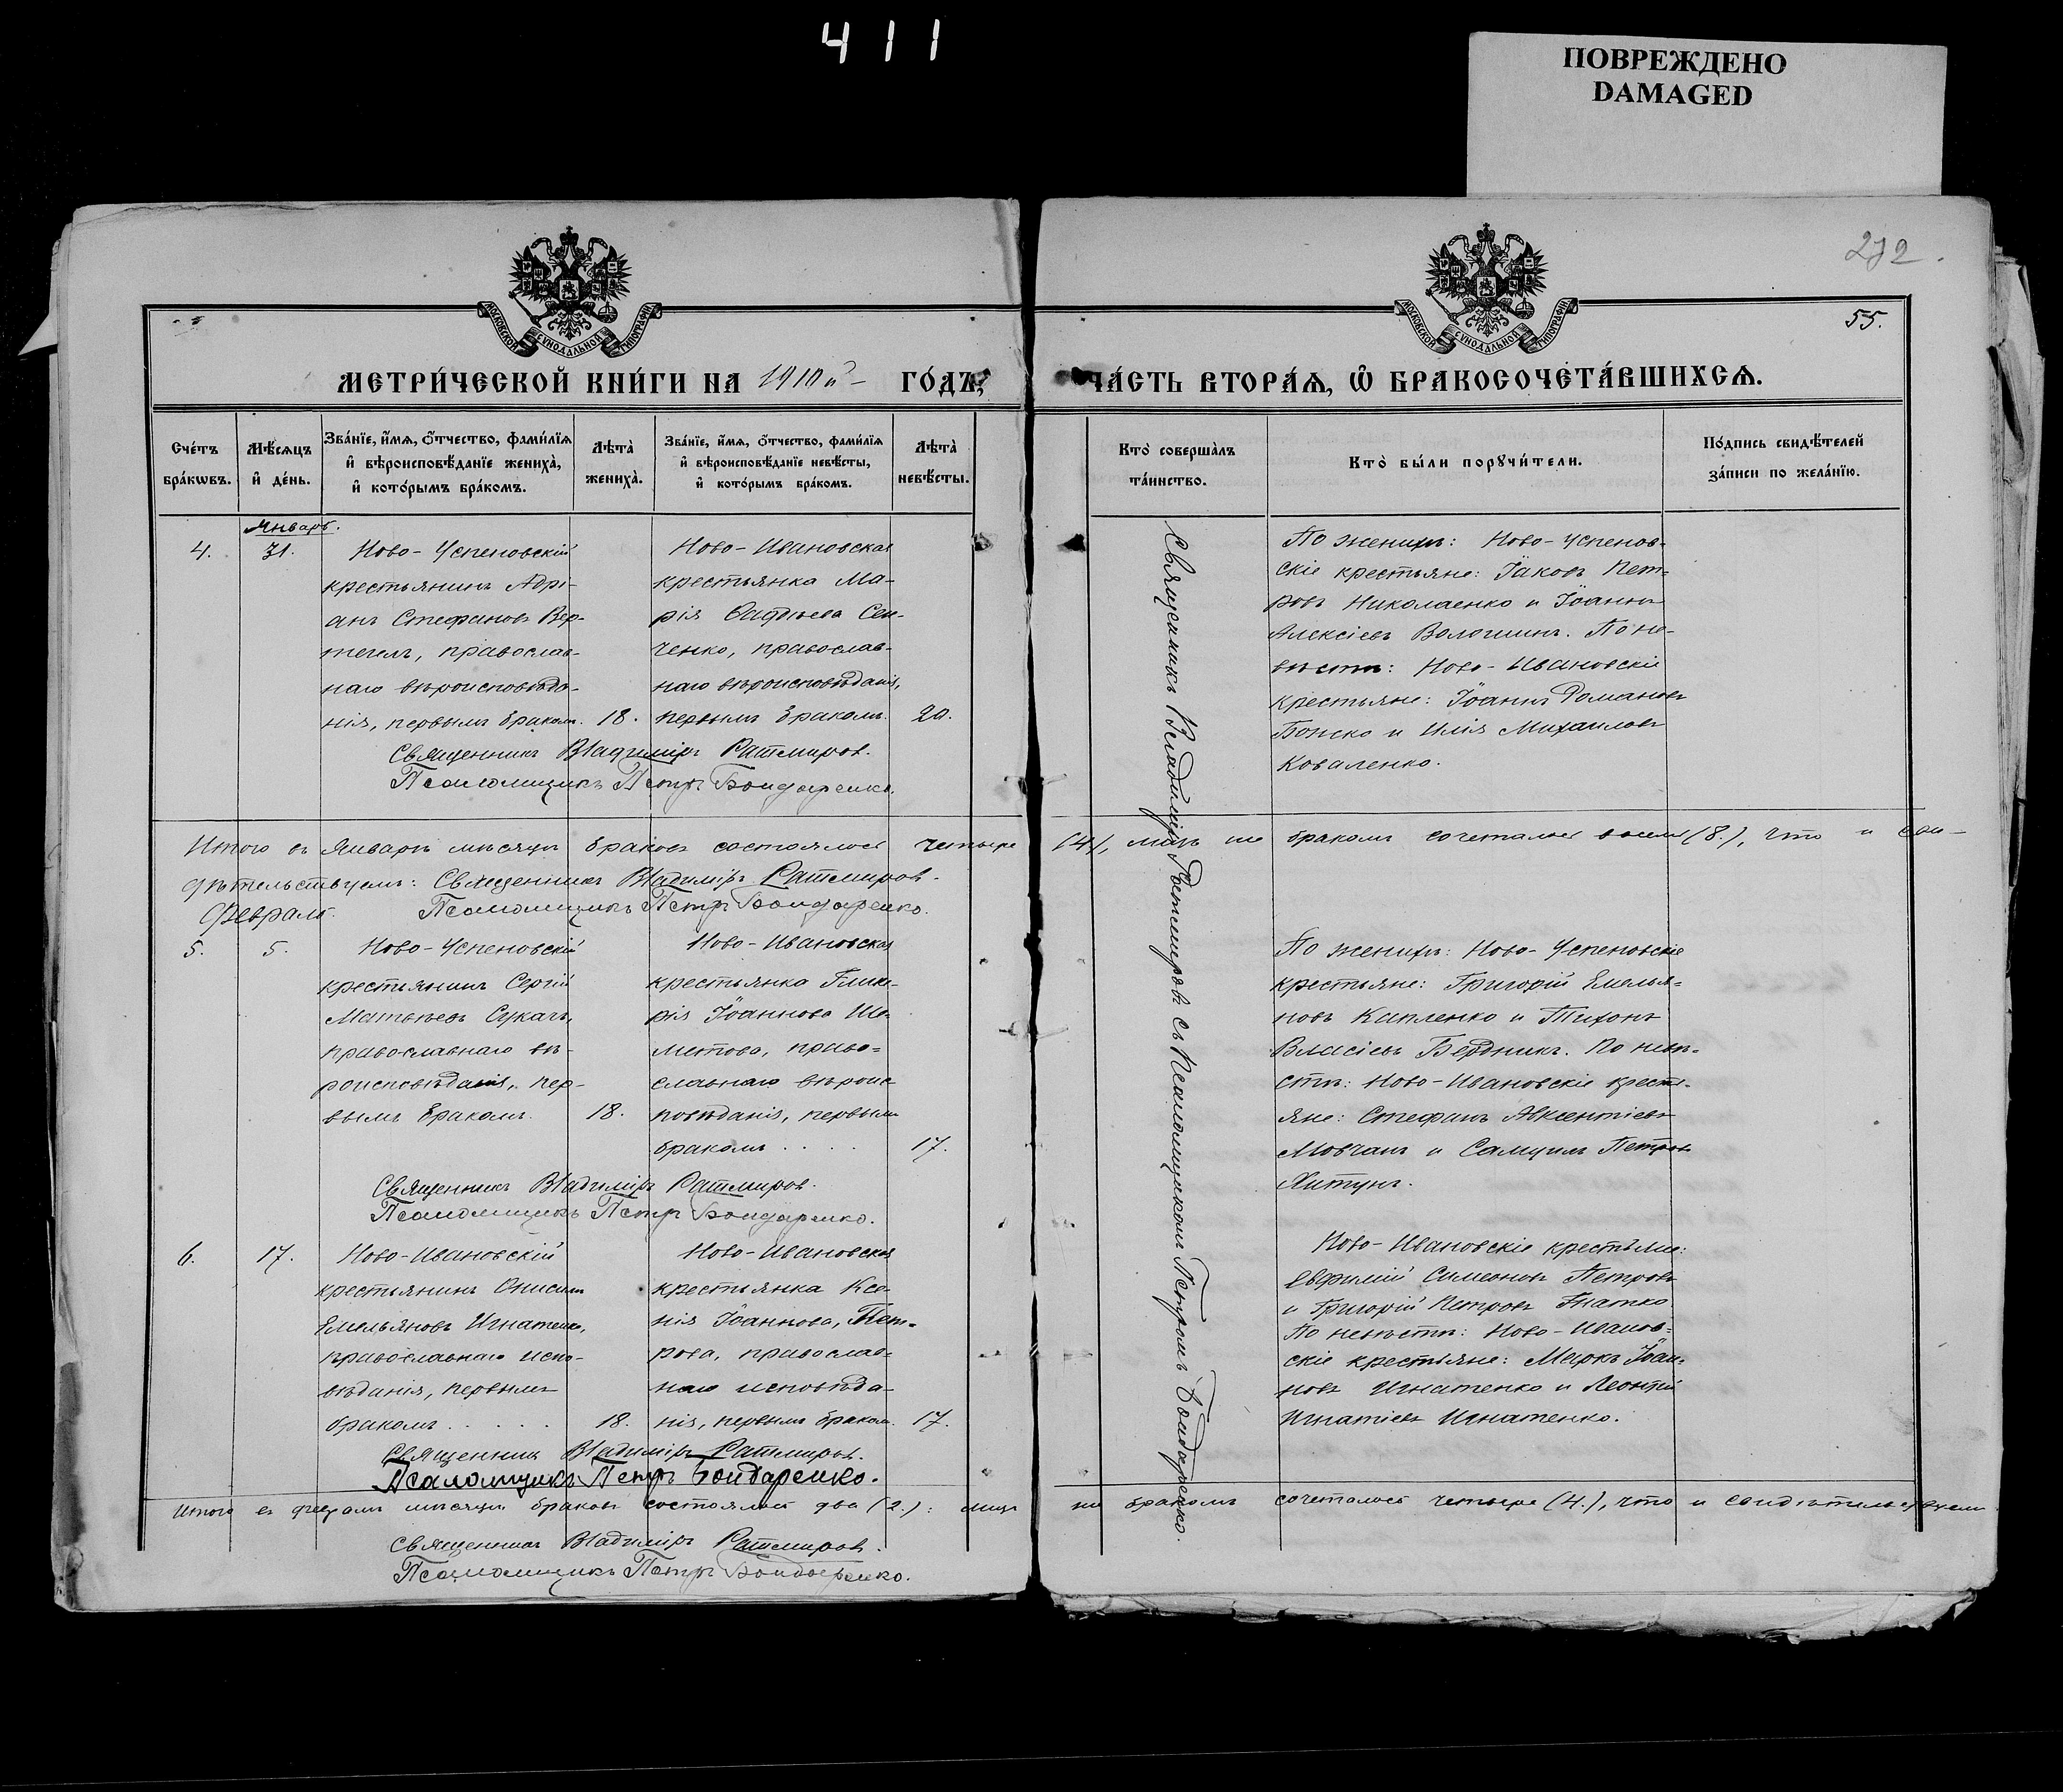 411
ПОВРЕЖДЕНО
DAMAGED
272.
55.
МОСКОВСКОЙ СѴНОДАЛЬНОЙ ТИПОГРАФІИ
МОСКОВСКОЙ СѴНОДАЛЬНОЙ ТИПОГРАФІИ
МЕТРИ́ЧЕСКОЙ КНИ́ГИ НА 1910й – ГО́ДЪ,
ЧА́СТЬ ВТОРА́Ѧ, Ѿ БРАКОСОЧЕТА́ВШИХСѦ.
Сче́тъ бра́кѡвъ.
Мѣ́сѧцъ и҆ де́нь.
Зва́нїе, и҆́мѧ, ѻ҆́тчество, фами́лїѧ
и҆ вѣроисповѣ́данїе жениха̀,
и҆ кото́рымъ бра́комъ.
Лѣта̀ жениха̀.
Зва́нїе, и҆́мѧ, ѻ҆́тчество, фами́лїѧ
и҆ вѣроисповѣ́данїе невѣ́сты,
и҆ кото́рымъ бра́комъ.
Лѣта̀ невѣ́сты.
Кто̀ соверша̀лъ
та́инство.
Кто̀ бы́ли порꙋчи́тели.
По́дпись свидѣ́телей
за́писи по жела́нїю.
Январь.
4.
31.
Ново-Успеновскій
крестьянинъ Адрі-
анъ Стефановъ Вер-
тегелъ, православ-
наго вѣроисповѣда-
нія, первымъ бракомъ.
18.
Ново-Ивановская
крестьянка Ма-
рія Сен-
ченко, православ-
наго вѣроисповѣданія,
первымъ бракомъ.
20.
Священникъ Владиміръ Ратмировъ.
Псаломщикъ Петръ Бондаренко.
По женихѣ: Ново-Успенов-
скіе крестьяне: Іаковъ Пет-
ровъ Николаенко и Іоаннъ
Алексіевъ Волошинъ. По не-
вѣстѣ: Ново-Ивановскіе
крестьяне: Іоаннъ Романовъ
и Илія Михаиловъ
Коваленко.
Священникъ Владиміръ Ратмировъ съ Псаломщикомъ Петромъ Бондаренко.
Итого въ Январѣ мѣсяцѣ браковъ состоялось четыре (4.), лицъ же бракомъ сочеталось восемь (8.), что и сви-
дѣтельствуемъ: Священникъ Владиміръ Ратмировъ.
Псаломщикъ Петръ Бондаренко.
Февраль.
5.
5.
Ново-Успеновскій
крестьянинъ Сергій
Матвѣевъ Сукачъ,
православнаго вѣ-
роисповѣданія, пер-
вымъ бракомъ.
18.
Ново-Ивановская
крестьянка Глике-
рія Іоаннова
право-
славнаго вѣроис-
повѣданія, первымъ
бракомъ . . . .
17.
Священникъ Владиміръ Ратмировъ.
Псаломщикъ Петръ Бондаренко.
По женихѣ: Ново-Успеновскіе
крестьяне: Григорій Емелья-
новъ Капленко и Тихонъ
Власіевъ Бердникъ. По невѣ-
стѣ: Ново-Ивановскіе кресть-
яне: Стефанъ Авксентіевъ
Мовчанъ и Самуилъ Петровъ
Яктунъ.
6.
17.
Ново-Ивановскій
крестьянинъ Онисимъ
Емельяновъ Игнатенко,
православнаго испо-
вѣданія, первымъ
бракомъ . . . . .
18.
Ново-Ивановская
крестьянка Ксе-
нія Іоаннова, Пет-
рова, православ-
наго исповѣда-
нія, первымъ бракомъ.
17.
Священникъ Владиміръ Ратмировъ.
Псаломщикъ Петръ Бондаренко.
Ново-Ивановскіе крестьяне:
Евфимій Симеоновъ Петровъ
и Григорій Петровъ Гнатко.
По невѣстѣ: Ново-Иванов-
скіе крестьяне: Маркъ Іоан-
новъ Игнатенко и Леонтій
Игнатіевъ Игнатенко.
Итого въ февралѣ мѣсяцѣ браковъ состоялось два (2.): лицъ же бракомъ сочеталось четыре (4.), что и свидѣтельствуемъ
Священникъ Владиміръ Ратмировъ.
Псаломщикъ Петръ Бондаренко.